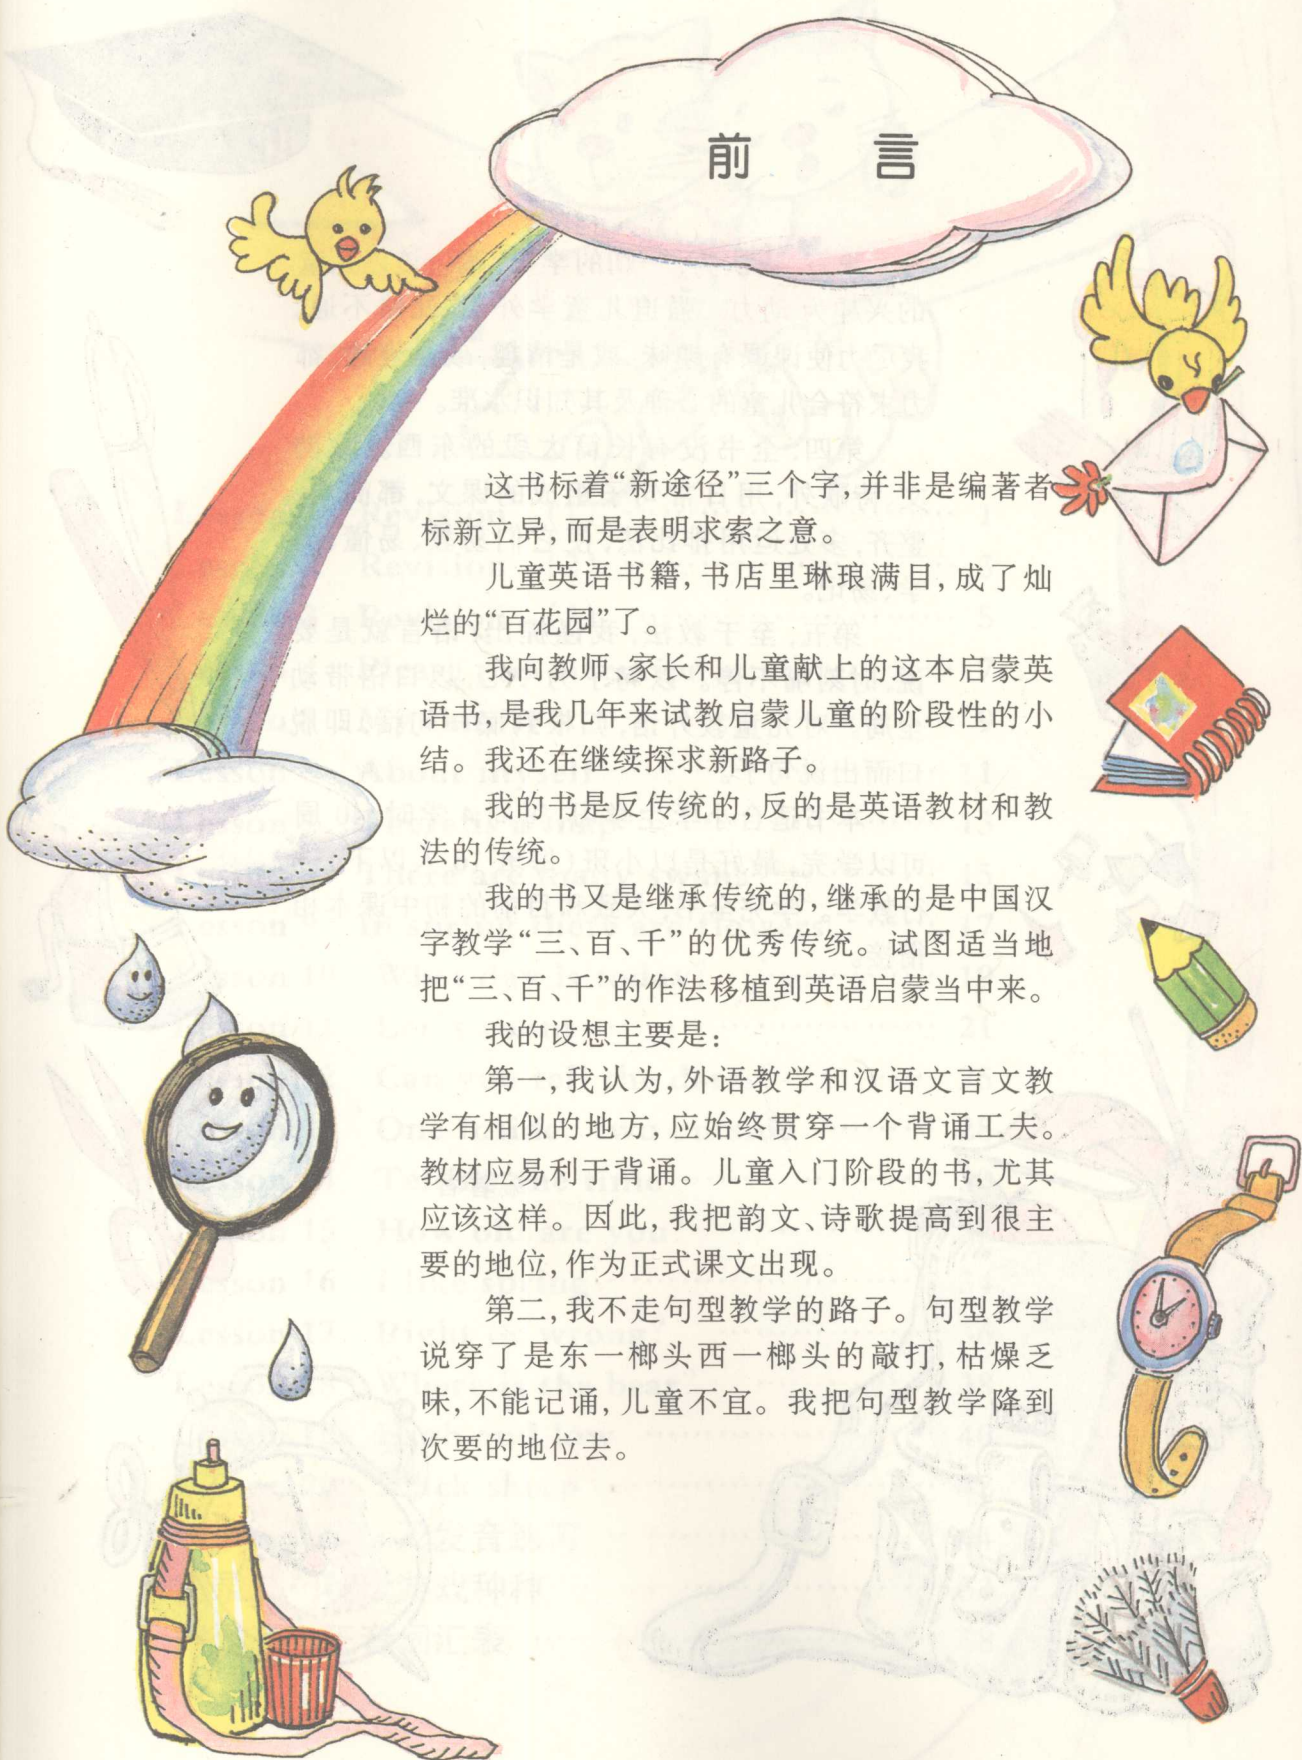 前 言
这书标着“新途径”三个字,并非是编著者
标新立异,而是表明求索之意。
儿童英语书籍,书店里琳琅满目,成了灿
烂的“百花园”了。
我向教师、家长和儿童献上的这本启蒙英
语书,是我几年来试教启蒙儿童的阶段性的小
结。我还在继续探求新路子。
我的书是反传统的,反的是英语教材和教
法的传统。
我的书又是继承传统的,继承的是中国汉
字教学“三、百、千”的优秀传统。试图适当地
把“三、百、千”的作法移植到英语启蒙当中来。
我的设想主要是:
第一,我认为,外语教学和汉语文言文教
学有相似的地方,应始终贯穿一个背诵工夫。
教材应易利于背诵。儿童入门阶段的书,尤其
应该这样。因此,我把韵文、诗歌提高到很主
要的地位,作为正式课文出现。
第二,我不走句型教学的路子。句型教学
说穿了是东一榔头西一榔头的敲打,枯燥乏
味,不能记诵,儿童不宜。我把句型教学降到
次要的地位去。